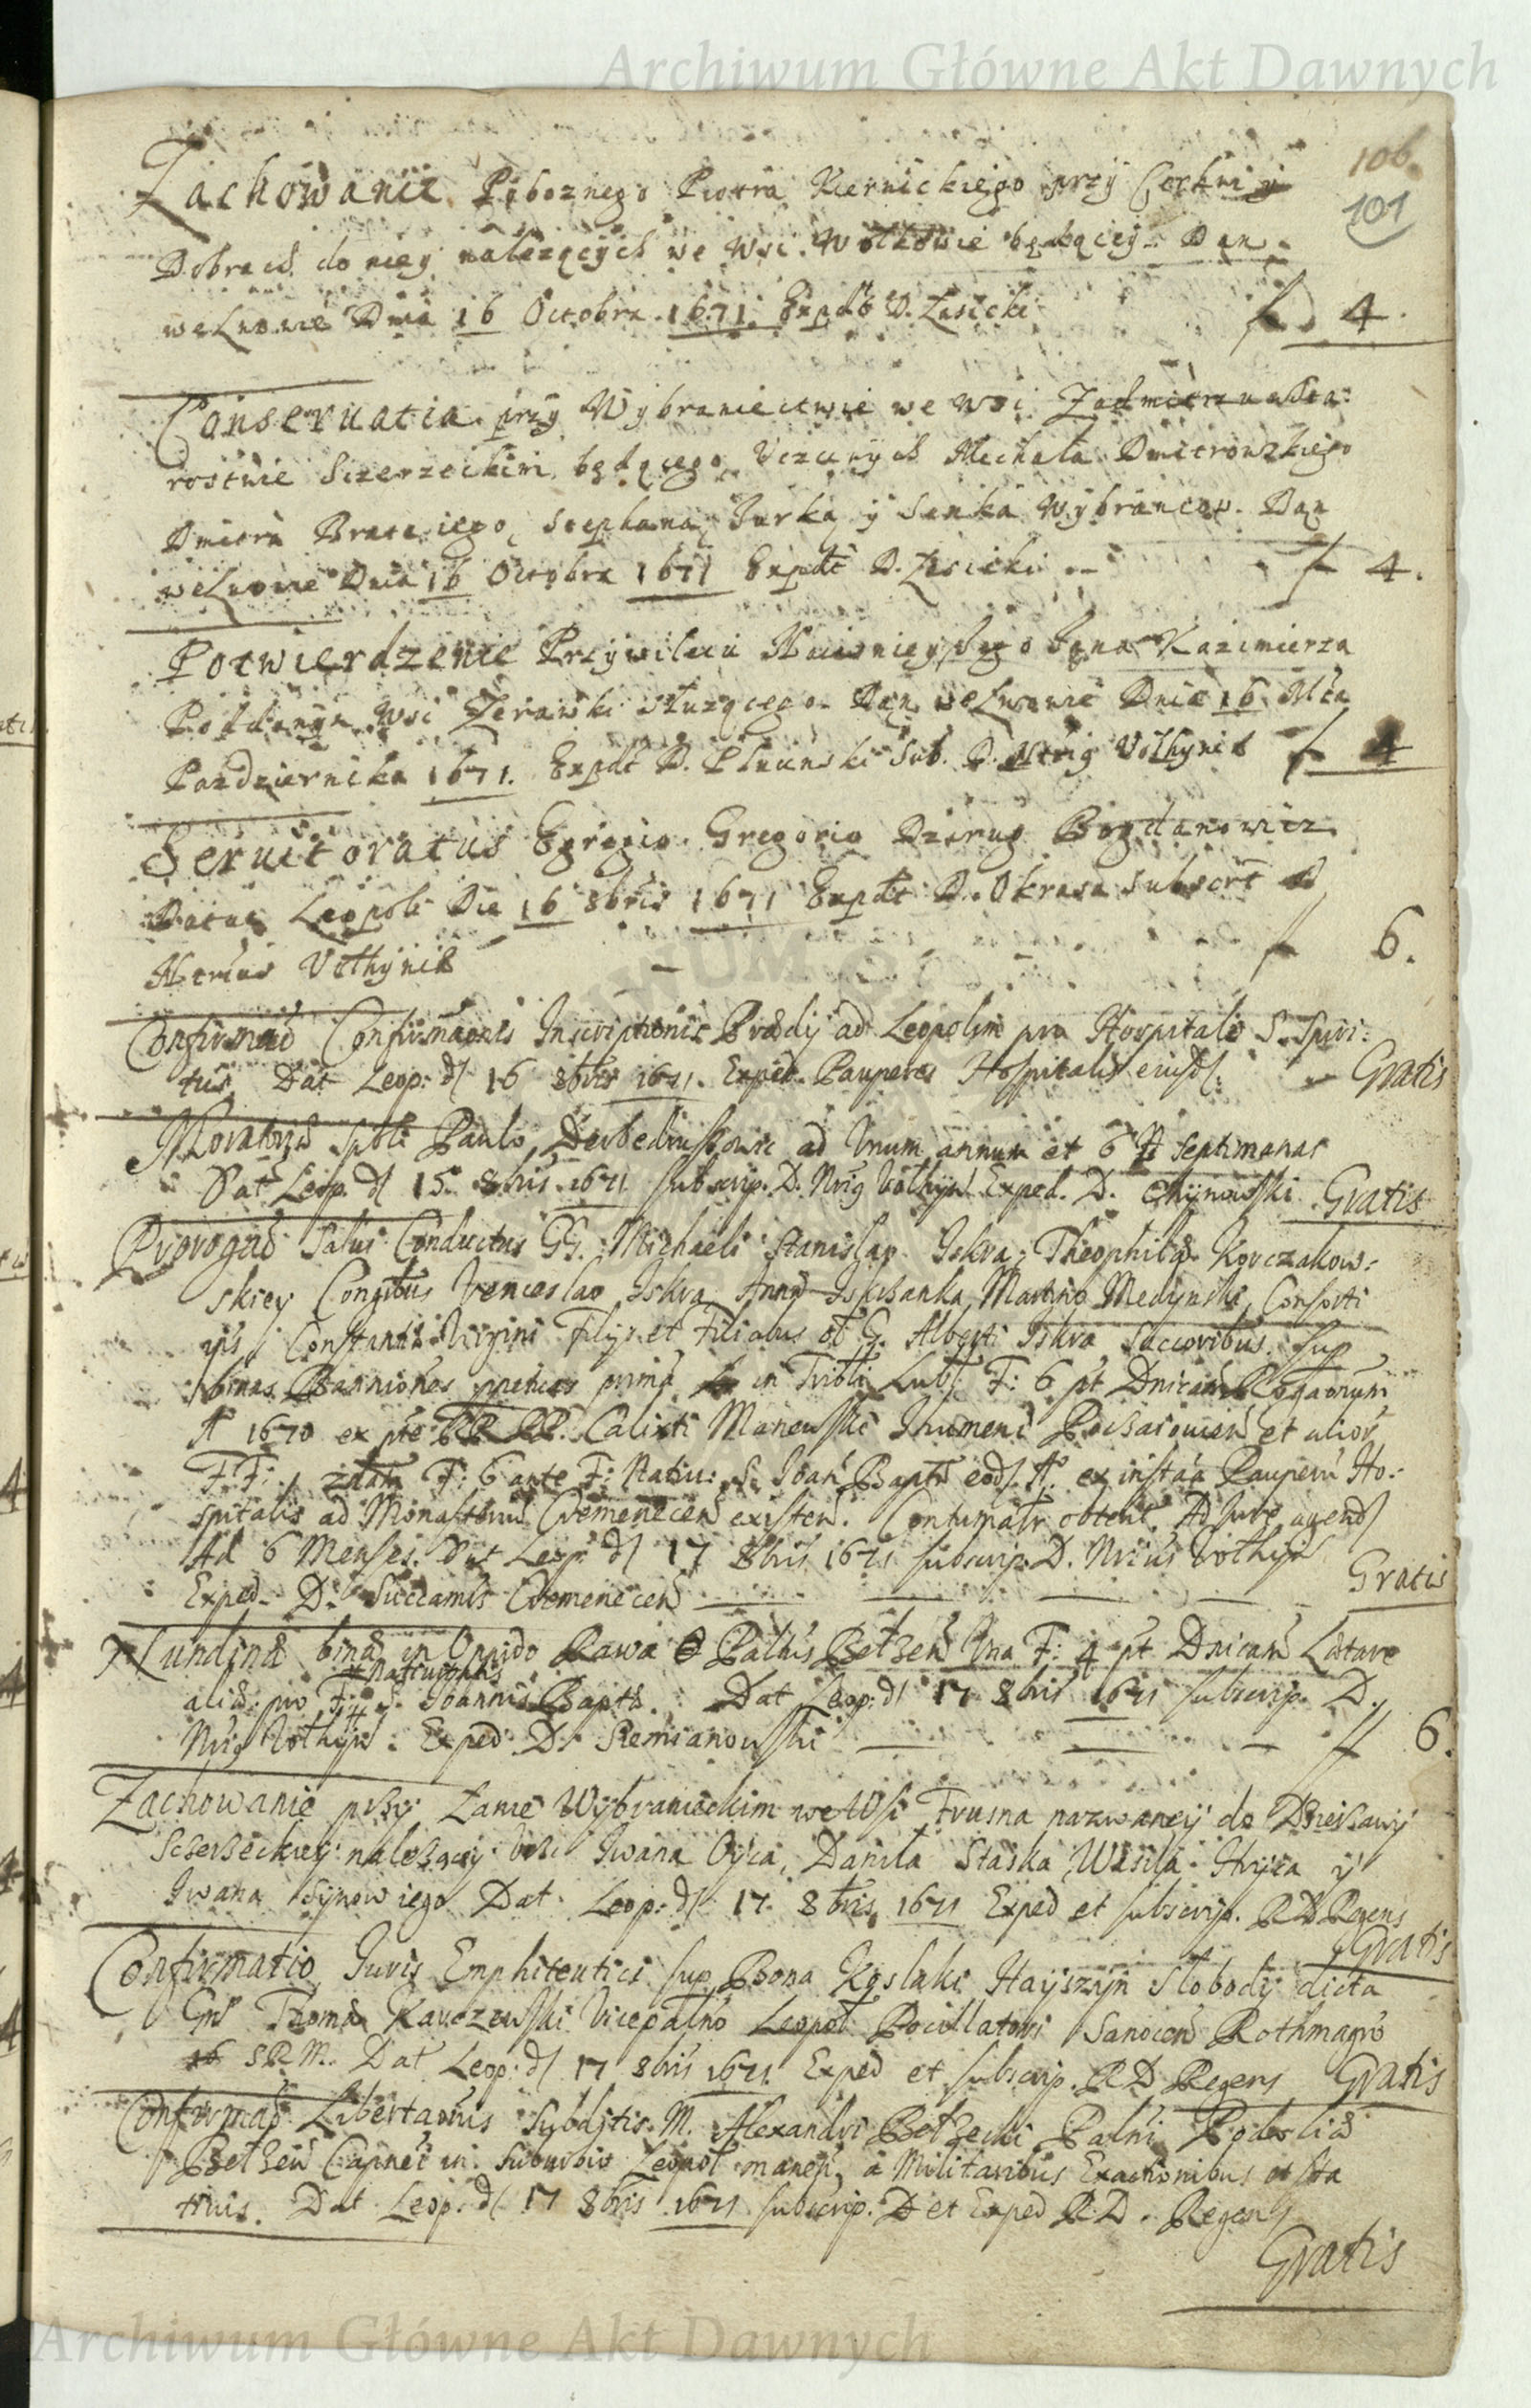 Archiwum Główne Akt Dawnych
106.
101
Zachowanie Poboznego Piotra Kiernickiego przÿ Cerkwi ÿ
Dobrach do nieÿ nalezącÿch we Wsi Wołkowie będącÿ. Dan
we Lwowie Dnia 16 Octobra 1671. Expdt D. Zasicki f 4.
Conseruatia przÿ Wÿbraniectwie we Wsi Zadmitrzu w Sta:
rostwie Sczerzeckim będącego Uczciwÿch Michała Dmitrowskiego
Dmitra Brata iego, Stephana, Jurka, ÿ Senka Wÿbrancow. Dan
we Lwowie Dnia 16 Octobra 1671 Expdt D. Zasicki f 4.
Potwierdzenie Przÿwileiu Naiasnieÿszego Jana Kazimierza
Poddanÿm Wsi Zerawki służącego. Dan we Lwowie Dnia 16 Mca
Pazdziernika 1671. Expdt D. Sub. D. Ntrig Volhynia f 4
Seruitoratus Egregio Gregorio Dzerug Bogdanowicz
Datus Leopoli Die 16 8bris 1671 Expdt D. Okrasa subscrt D
Ntrius Volhynia f 6.
Confirmaō Confirmaonis Inscriptionis Prædij ad Leopolim pro Hospitali S. Spiri:
tus Dat Leop: d 16 8bris 1671. Exped. Pauperes Hospitalis eiusd. Gratis
Moratoriū Spbli Paulo ad Vnum annum et 6 Septimanas
Dat Leop. d 15 8bris 1671 subscrip. D. Nrig Volhyn Exped. D. Gratis
Prorogaō Salui Conductus GG. Michaeli Stanislao Iskra, Theophila Korczakow:
skiey Coniugibus Venceslao Iskra Anna Iskrzanka, Martino Medynski, Consorti
ips, Constantia Virgini Filijs et Filiabus ol G. Alberti Iskra Succoribus. Sup
binas Banniones pnentes primā in Tribli Lubl F: 6 pt Dnicam Rogaonum
A 1670 ex pte RR PP. Calixti Ihumeni et alior
F.F: F: 6 ante F: Natiu: S. Joan Bapta eod. A. ex instāa Pauperū Ho:
spitalis ad Monasteriū Cremenecen existen. Contumatr obtent. Ad Jure agend
Ad 6 Menses. Dat Leop. d 17 8bris 1671 subscrip. D. Nrius Volhyn
Exped. D. Succamis Cremenecen Gratis
Nundinæ binæ in Oppido Rawa Paltus Bełzen Vna F: 4 pt Dnicam Lætare
Natiuitatis
alia pro F: S. Joannis Bapta. Dat Leop: d 17 8bris 1671 subscrip. D.
Nrig Volhyn. Exped D. Remianowski f 6.
Zachowanie przÿ Łanie Wÿbranieckim we Wsi Trusna nazwaneÿ do Dzierżawÿ
Sczerzeckieÿ należącÿ Vczc Iwana Oÿca, Daniła Staska Wasila Hrÿca ÿ
Iwana Sÿnow iego Dat Leop: d 17 8bris 1671 Exped et subscrip. R D Regens
Gratis
Confirmatio Juris Emphiteutici sup Bona Kąslaki Haÿszÿn Słobodÿ dicta
Gnso Thoma Karczewski Vicepaltno Leopol Pocillatori Sanocen Rothmagro
S R M. Dat Leop: d 17 8bris 1671 Exped et subscrip. R D Regens Gratis
Confirmaō Libertaonis Subditis M. Alexandri Bełzecki Paltni Podolia
Bełzen Capnei in Suburbio Leopol manen, a Militaribus Exactionibus et sta
tiuis. Dat Leop. d 17 8bris 1671 subscrip. D et Exped R D. Regens
Gratis
Archiwum Główne Akt Dawnych